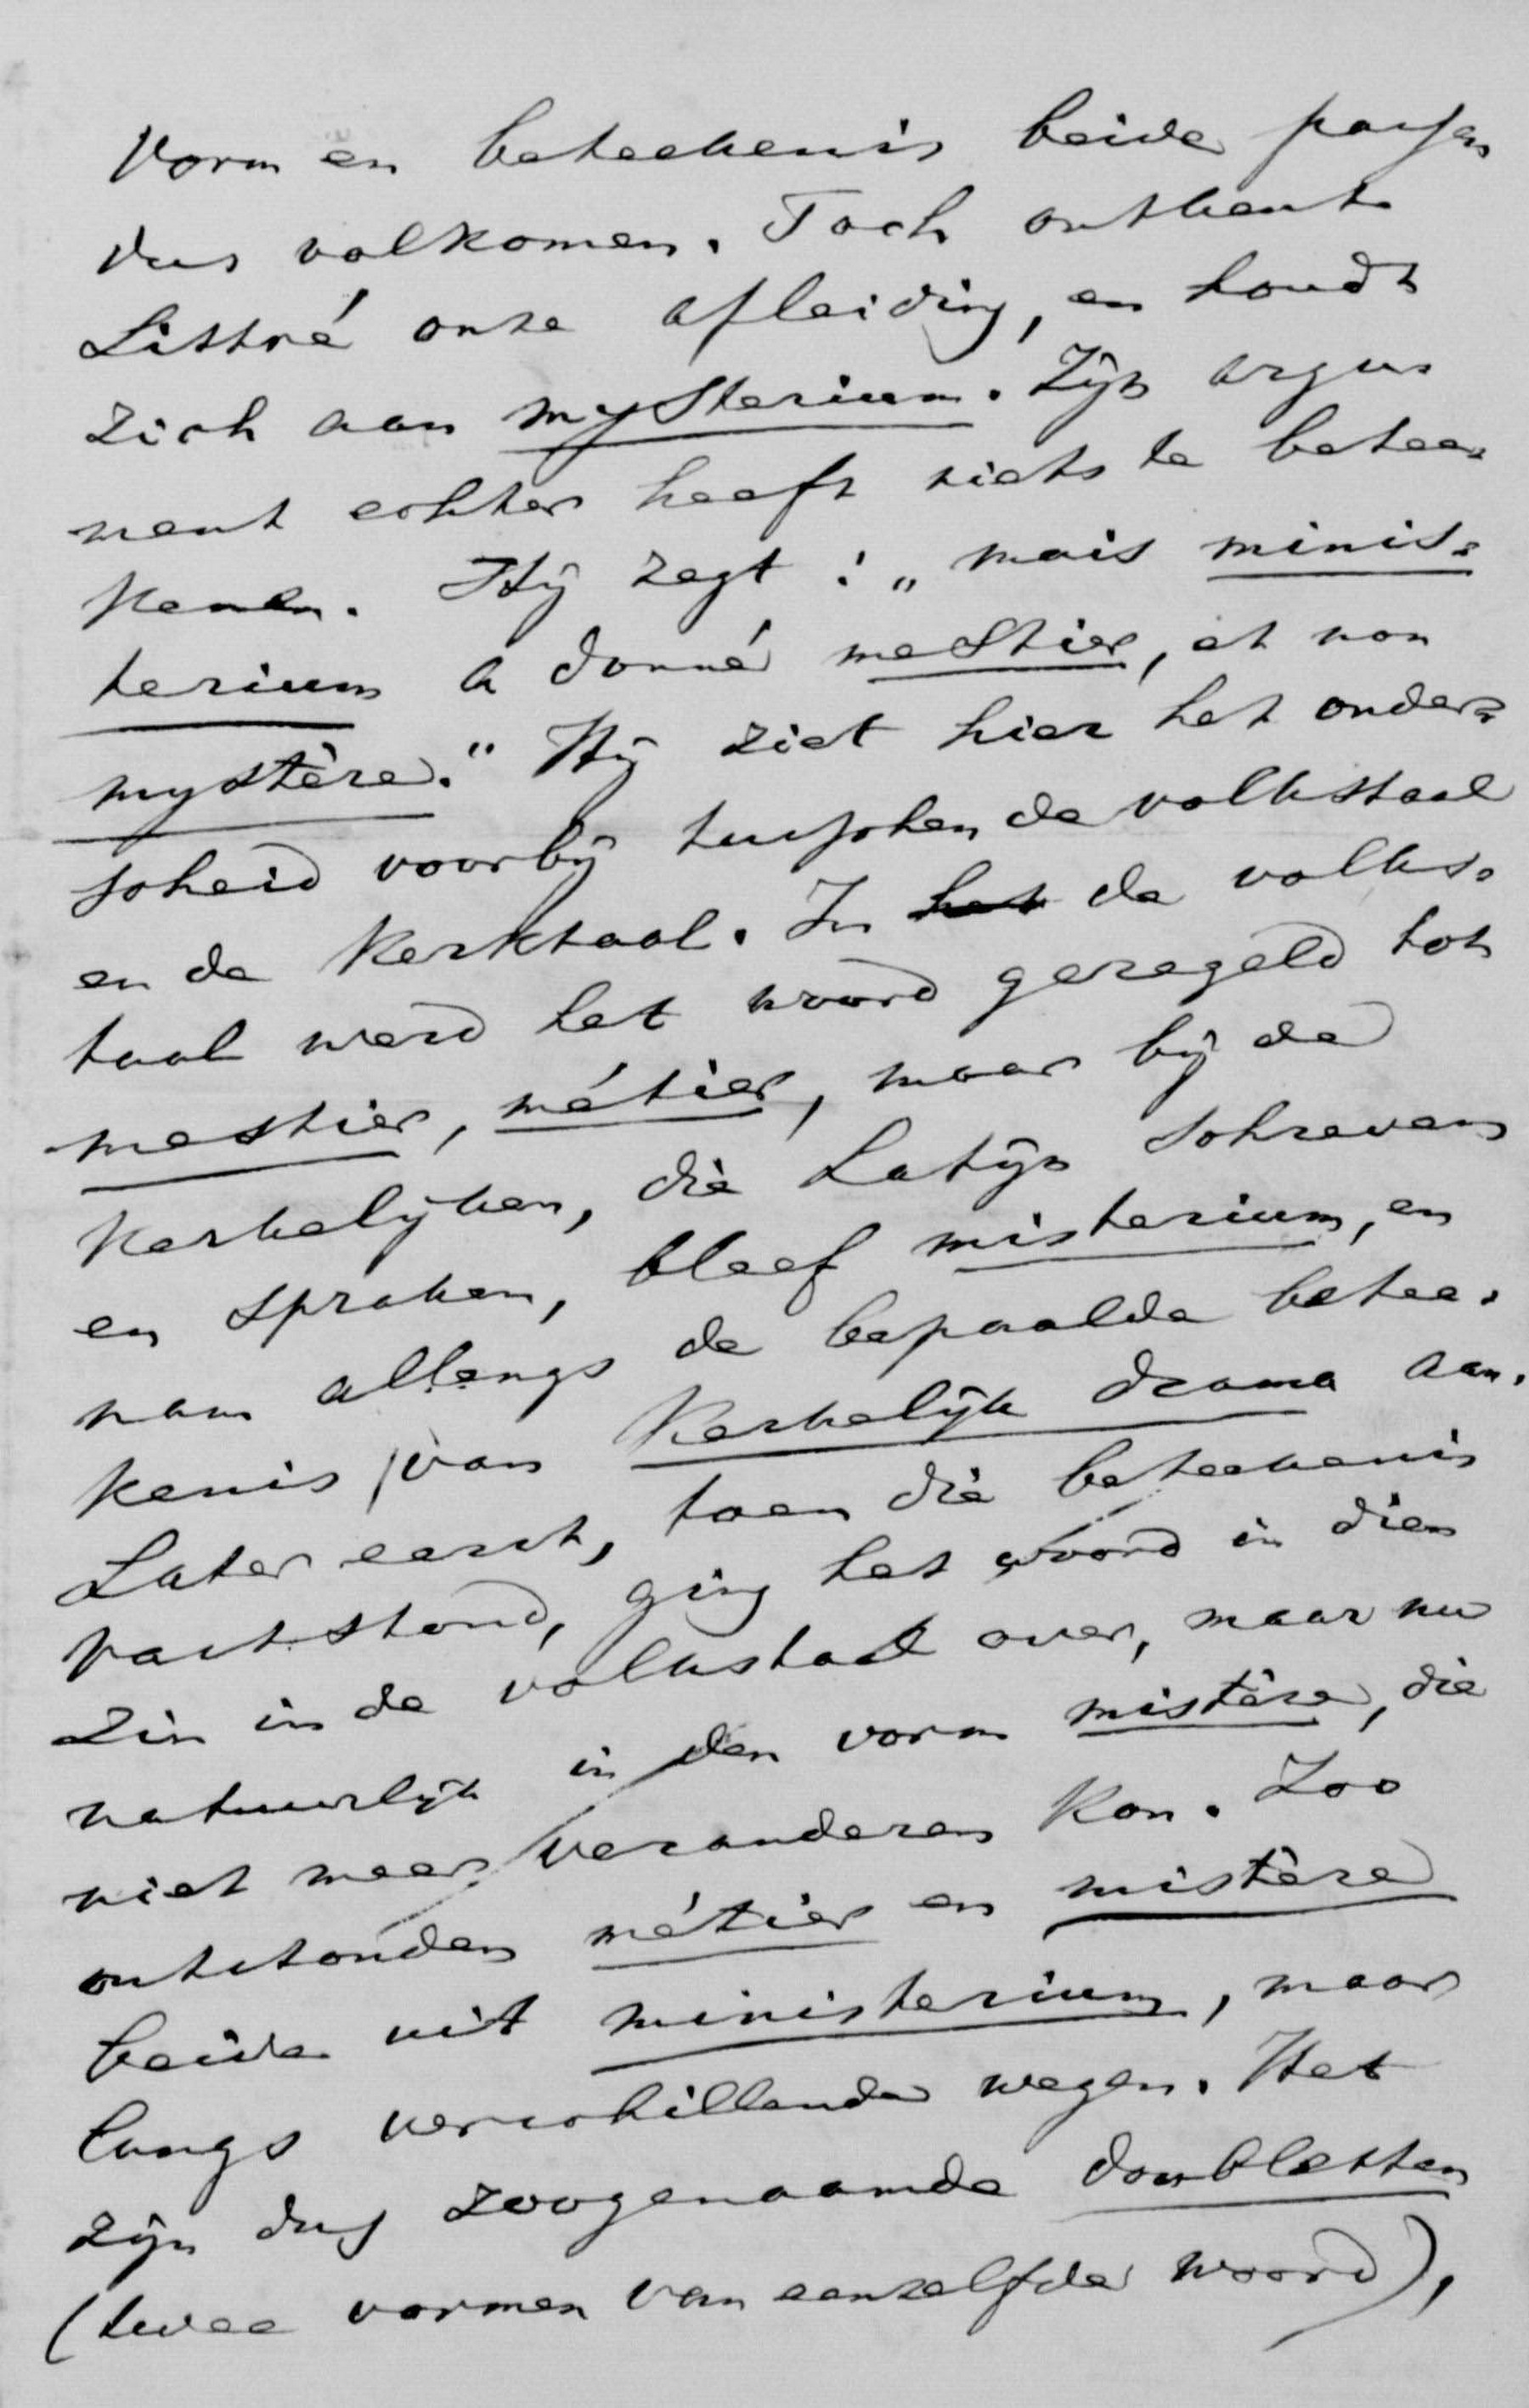 Vorm en beteekenis beide passen
dus volkomen. Toch ontkent
Littré onze afleiding, en houdt
zich aan mysterium. Zijn argu-
ment echter heeft niets te betee-
kenen. Hij zegt: „mais minis-
terium a donné mestier, et non
mystère." Hij ziet hier het onder-
scheid voorbij tusschen de volkstaal
en de kerktaal. In het de volks-
taal werd het woord geregeld tot
mestier, métier, maar bij de
kerkelijken, die Latijn schreven
en spraken, bleef misterium, en
nam allengs de bepaalde betee-
kenis van kerkelijk drama aan.
Later eerst, toen die beteekenis
vast stond, ging het woord in dien
zin in de volkstaal over, maar nu
natuurlijk in den vorm mistère, die
niet meer veranderen kon. Zoo
ontstonden métier en mistère
beide uit ministerium, maar
langs verschillende wegen. Het
zijn dus zoogenaamde doubletten
(twee vormen van eenzelfde woord),